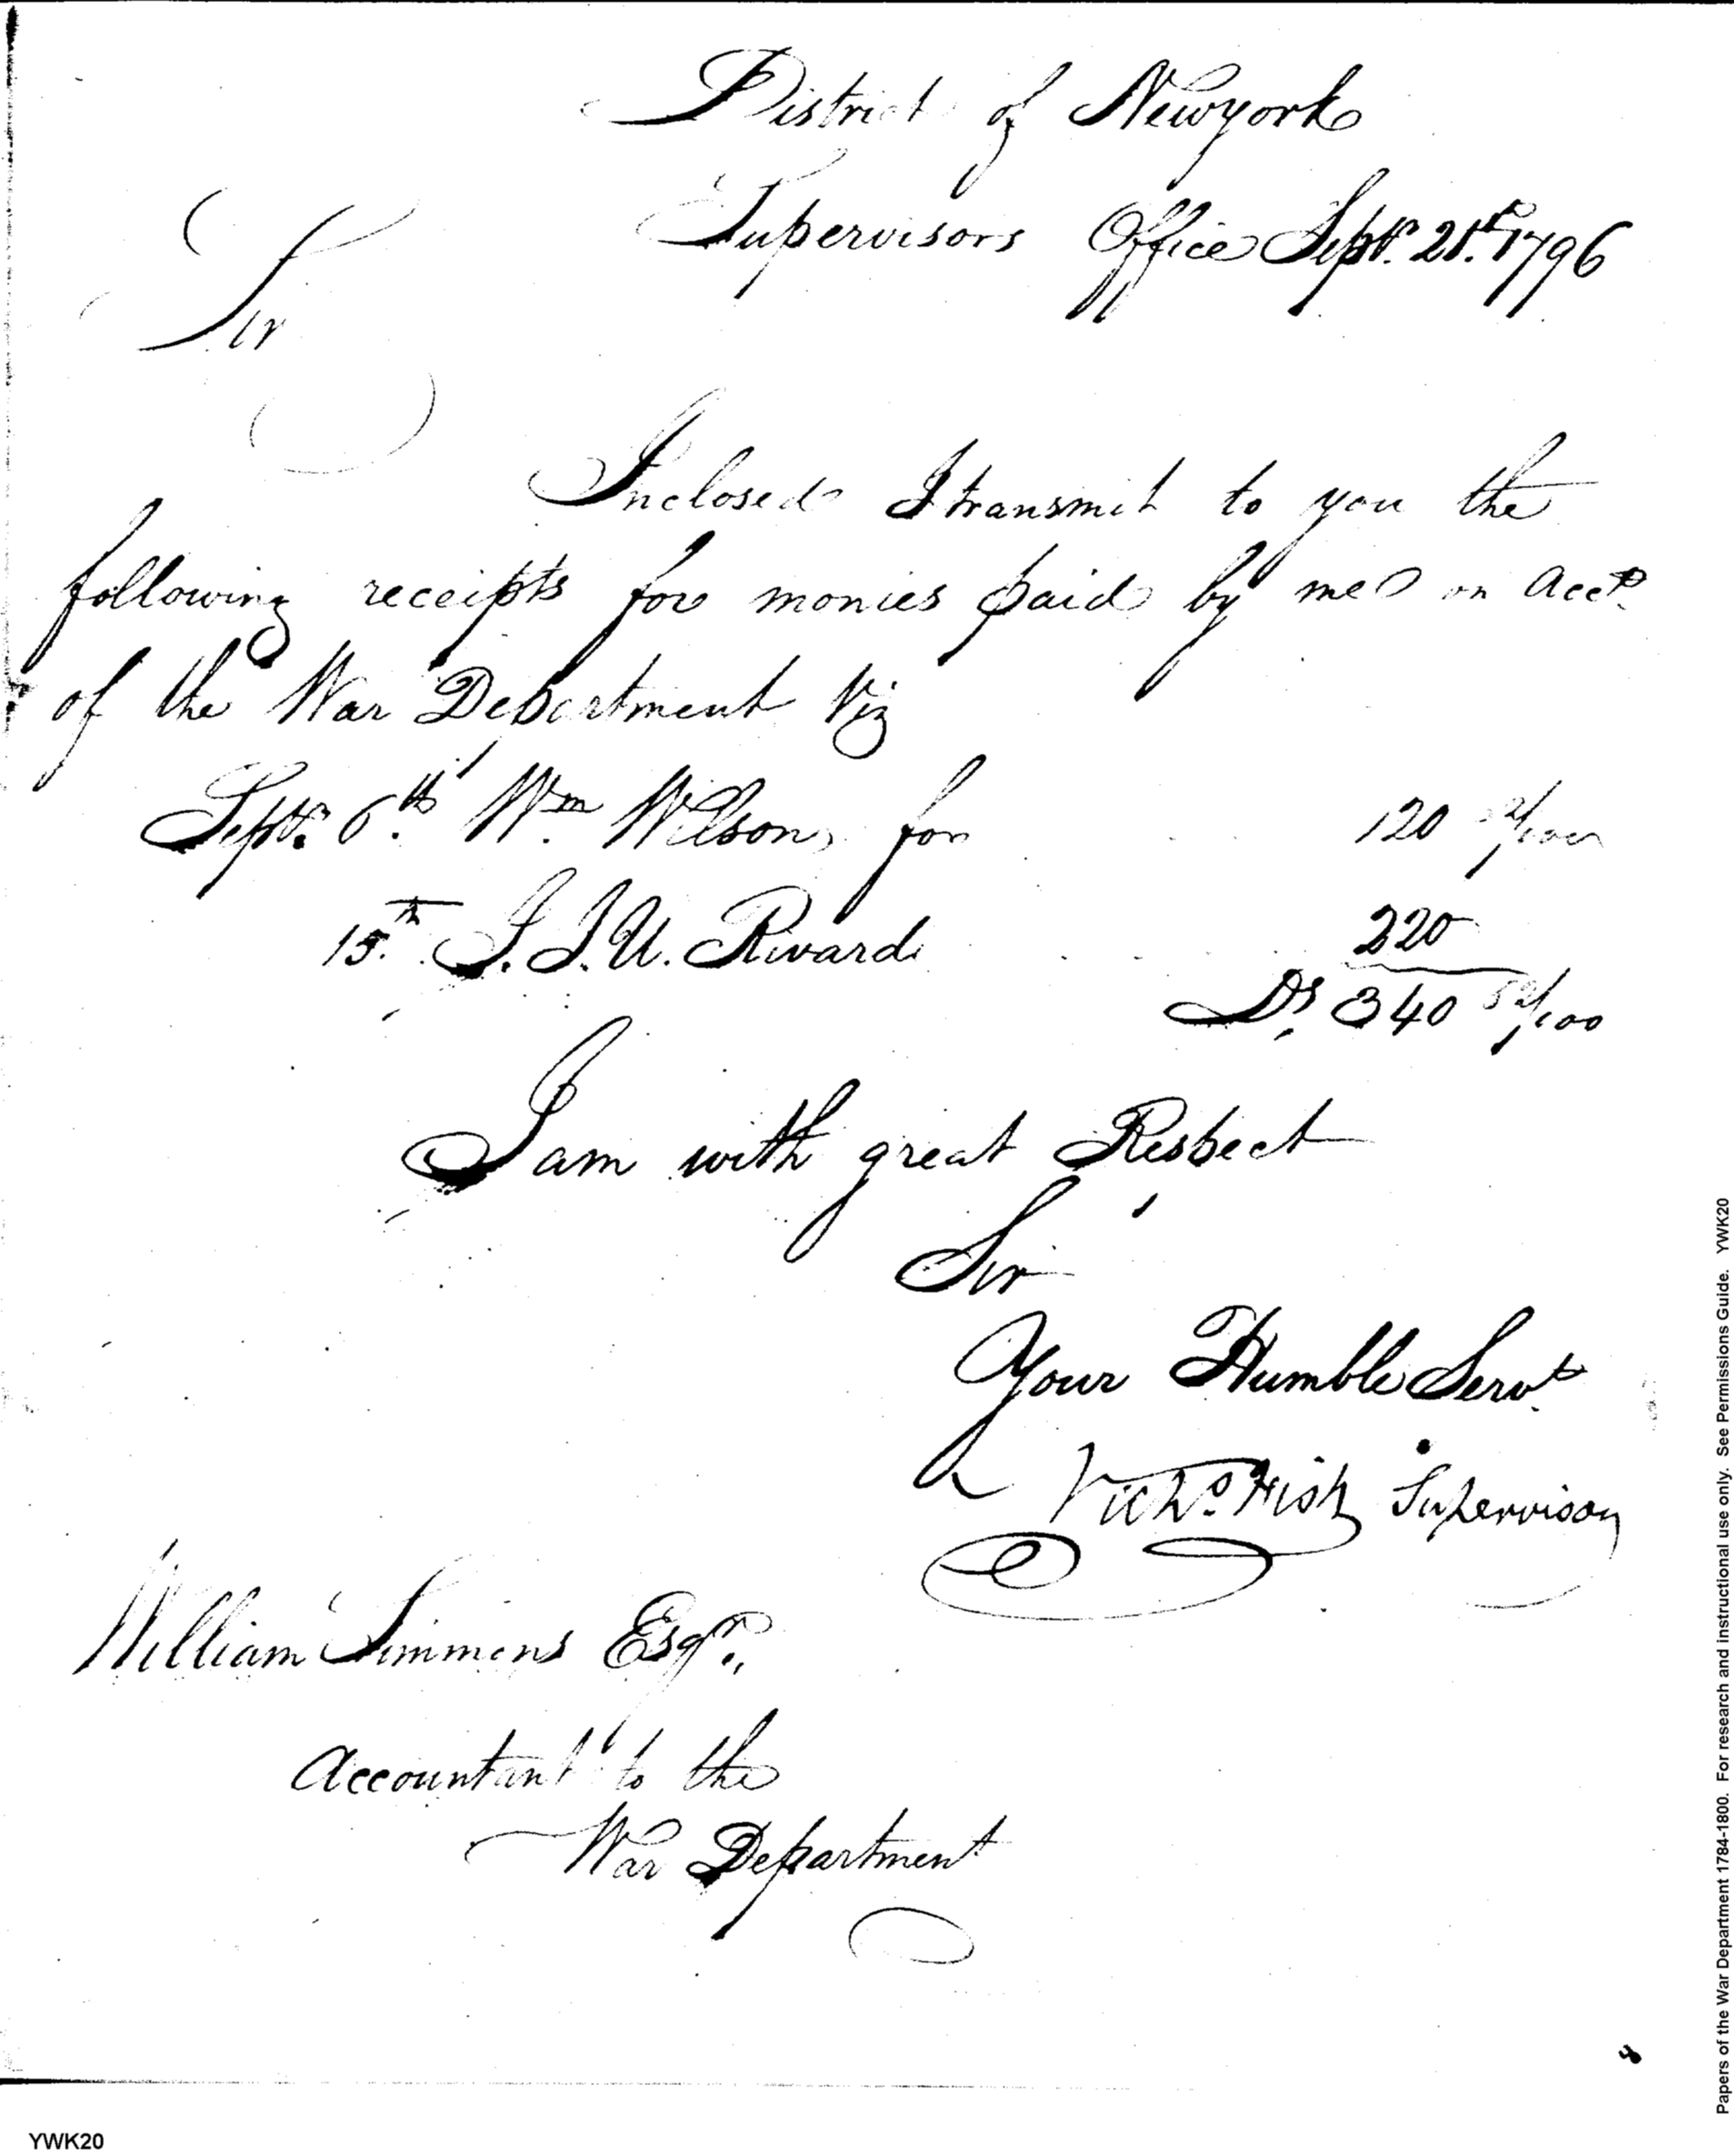 District of Newyork
Supervisors Office Septr. 21st. 1796
Sir
Inclosed I transmit to you the
following receipts for monies paid by me on Acct.
of the War Department Viz
Septr. 6th. Wm. Wilson, for 120 /100
15th. J. J. U. Rivardi 220
Ds. 340 52/100
I am with great Respect
Sir
Your Humble Servt.
Nichs. Fish Supervisor
William Simmons Esqr.,
Accountant to the
War Department
YWK20
Papers of the War Department 1784-1800. For research and instructional use only. See Permissions Guide. YWK20